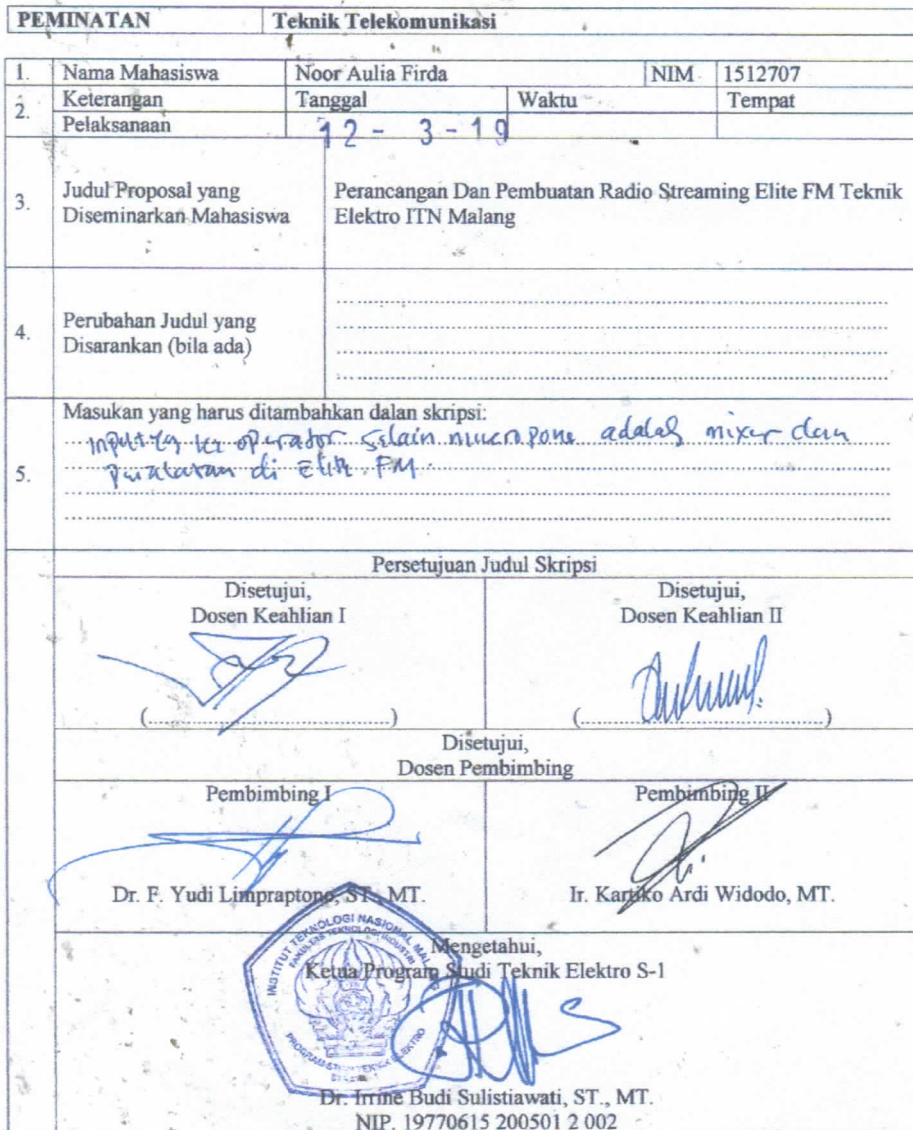 PEMINATAN Teknik Telekomunikasi
1. Nama Mahasiswa Noor Aulia Firda NIM 1512707
2. Keterangan Pelaksanaan Tanggal Waktu Tempat
12 - 3 - 19
3. Judul Proposal yang Diseminarkan Mahasiswa
Perancangan Dan Pembuatan Radio Streaming Elite FM Teknik
Elektro ITN Malang
4. Perubahan Judul yang
Disarankan (bila ada)
5. Masukan yang harus ditambahkan dalan skripsi:
ke operator selain adalah mixer dan
peralatan di Elite FM.
Persetujuan Judul Skripsi
Disetujui,
Dosen Keahlian I
Disetujui,
Dosen Keahlian II
(..........................................)
(..........................................)
Disetujui,
Dosen Pembimbing
Pembimbing I
Pembimbing II
Dr. F. Yudi Limpraptono, ST., MT.
Ir. Kartiko Ardi Widodo, MT.
Mengetahui,
Ketua Program Studi Teknik Elektro S-1
INSTITUT TEKNOLOGI NASIONAL MALANG
FAKULTAS TEKNOLOGI INDUSTRI
PROGRAM STUDI TEKNIK ELEKTRO
Dr. Irrine Budi Sulistiawati, ST., MT.
NIP. 19770615 200501 2 002